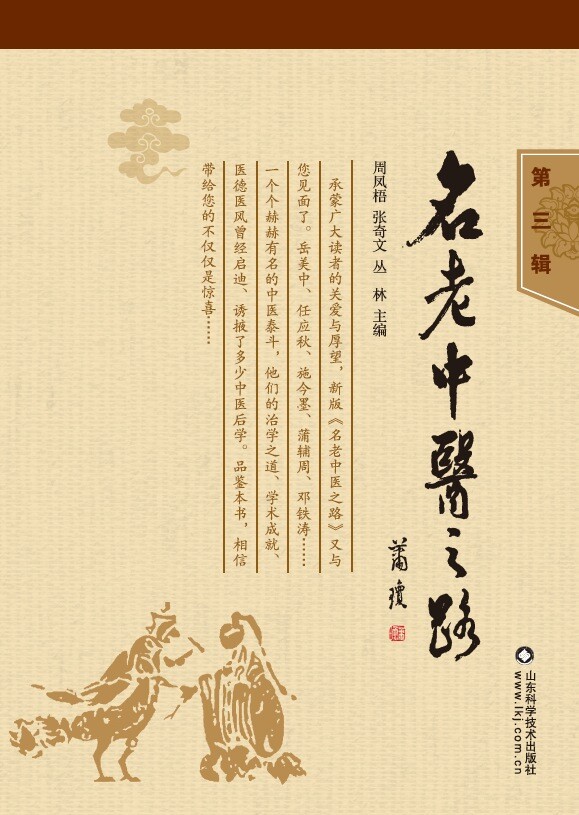 第三辑
名老中醫之路
萧琼
周凤梧 张奇文 丛 林 主编
承蒙广大读者的关爱与厚望，新版《名老中医之路》又与
您见面了。岳美中、任应秋、施今墨、蒲辅周、邓铁涛……
一个个赫赫有名的中医泰斗，他们的治学之道、学术成就、
医德医风曾经启迪、诱掖了多少中医后学。品鉴本书，相信
带给您的不仅仅是惊喜……
山东科学技术出版社
www.lkj.com.cn